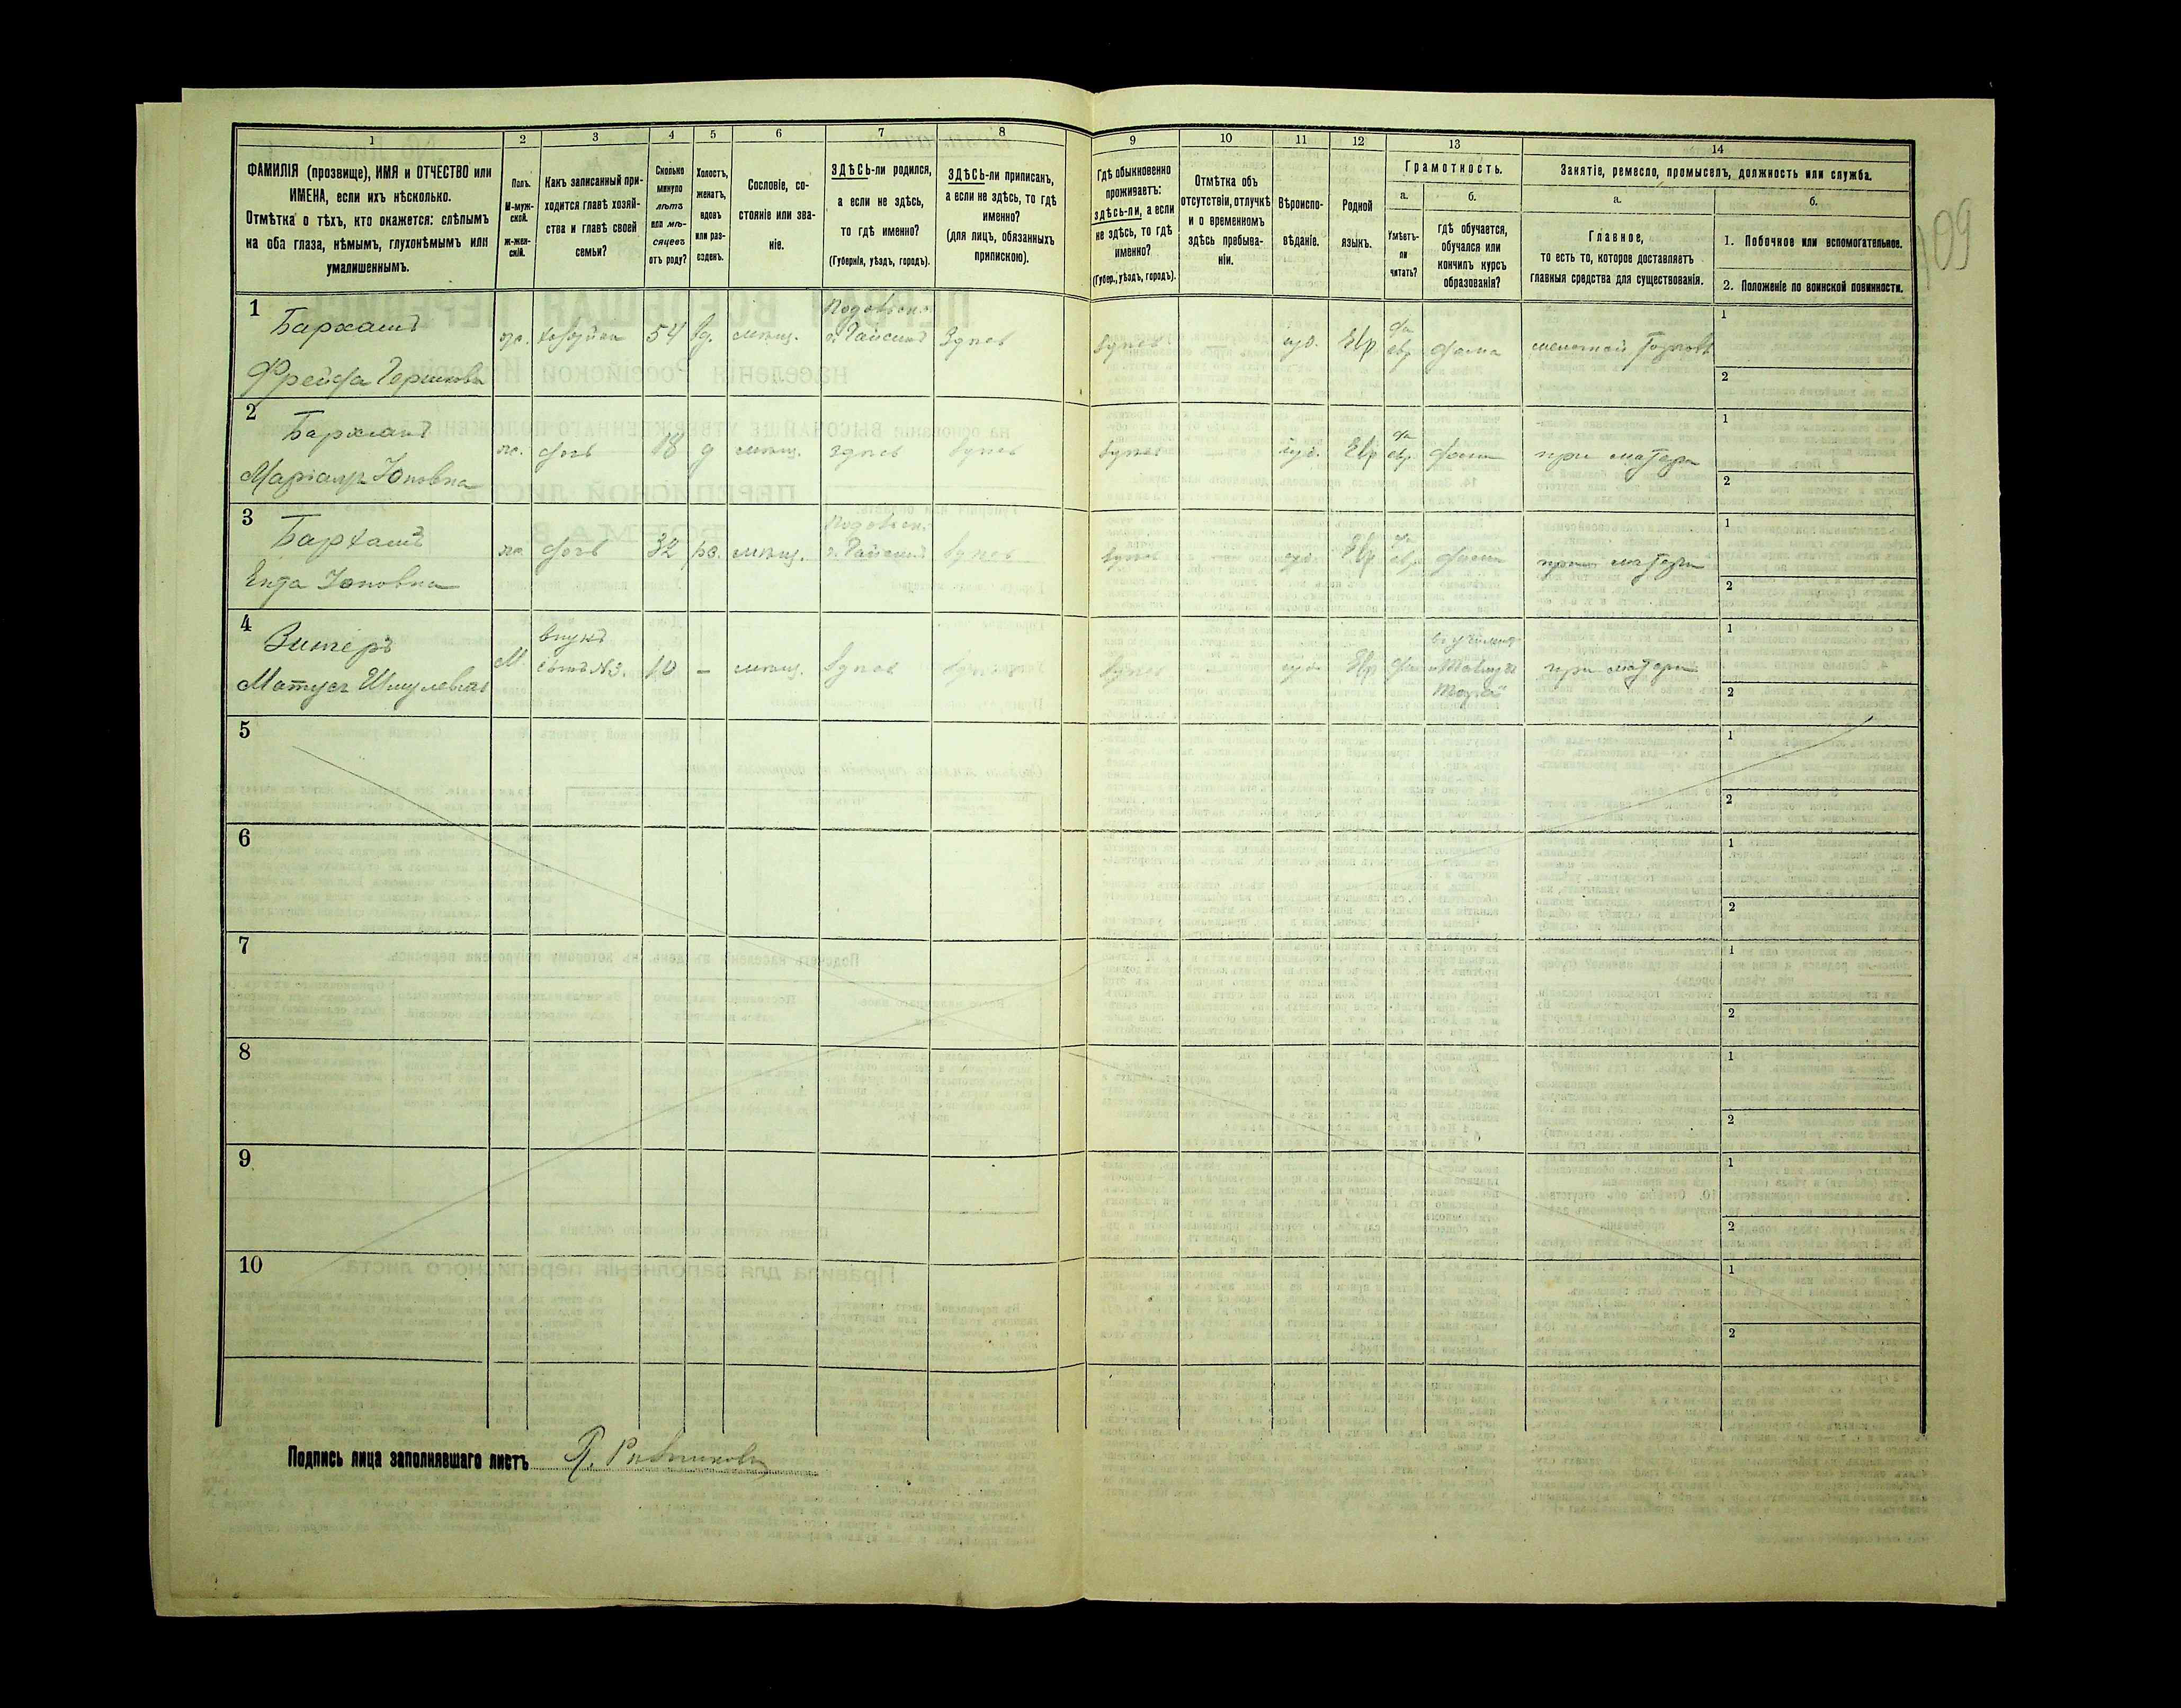 1
2
3
4
5
6
7
8
9
10
11
12
13
14
ФАМИЛІЯ (прозвище), ИМЯ и ОТЧЕСТВО или
ИМЕНА, если ихъ нѣсколько.
Отмѣтка о тѣхъ, кто окажется: слѣпымъ
на оба глаза, нѣмымъ, глухонѣмымъ или
умалишеннымъ.
Полъ.
М-муж-
ской.
ж-жен-
скій.
Какъ записанный при-
ходится главѣ хозяй-
ства и главѣ своей
семьи?
Сколько
минуло
лѣтъ
или мѣ-
сяцевъ
отъ роду?
Холостъ,
женатъ,
вдовъ
или раз-
веденъ.
Сословіе, со-
стояніе или зва-
ніе.
ЗДѢСЬ-ли родился,
а если не здѣсь,
то гдѣ именно?
(Губернія, уѣздъ, городъ).
ЗДѢСЬ-ли приписанъ,
а если не здѣсь, то гдѣ
именно?
(для лицъ, обязанныхъ
припискою).
Гдѣ обыкновенно
проживаетъ:
здѣсь-ли, а если
не здѣсь, то гдѣ
именно?
(Губер., уѣздъ, городъ).
Отмѣтка объ
отсутствіи, отлучкѣ
и о временномъ
здѣсь пребыва-
ніи.
Вѣроиспо-
вѣданіе.
Родной
языкъ.
Грамотность.
а.
Умѣетъ-
ли
читать?
б.
гдѣ обучается,
обучался или
кончилъ курсъ
образованія?
Занятіе, ремесло, промыселъ, должность или служба.
а.
Главное,
то есть то, которое доставляетъ
главныя средства для существованія.
б.
1. Побочное или вспомогательное.
2. Положеніе по воинской повинности.
109
1
Бархашъ
Фрейда Гершкова
хозяйка
54
вд.
мѣщ.
г. Гайсинъ
Здѣсь
здѣсь
іуд.
Евр
да
евр
дома
1
2
2
Бархашъ
Маріамъ Іоновна
дочь
18
д
мѣщ.
здѣсь
здѣсь
здѣсь
іуд.
Евр
да
евр
дома
при матери
1
2
3
Бархашъ
Ента Іоновна
дочь
32
мѣщ.
г. Гайсинъ
здѣсь
здѣсь
іуд.
Евр
да
евр
дома
при матери
1
2
4
Матусъ Шмулевъ
М
внукъ
сынъ №3.
10
-
мѣщ.
здѣсь
здѣсь
здѣсь
іуд.
Евр
да
при матери
1
2
5
1
2
6
1
2
7
1
2
8
1
2
9
1
2
10
1
2
Подпись лица заполнявшаго листъ